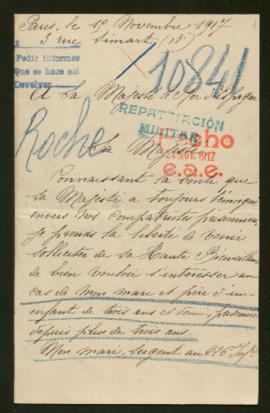 Paris, le 15 Novembre 1917
3 rue Simart (18)
Pedir informes
Que se hace así
Devolver
10841
A Sa Majesté le Roi d'Espagne
REPATRIACIÓN
MILITAR
Roche
hecho
NOV. 1917
e.a.e.
Sa Majesté
Connaissant la bonté que
Sa Majesté a toujours témoigné
envers nos compatriotes prisonniers
je prends la liberté de venir
solliciter de Sa Haute Bienveillance
de bien vouloir s'intéresser au
cas de mon mari et père d'un
enfant de trois ans et demi, prisonnier
depuis plus de trois ans.
Mon mari, sergent au